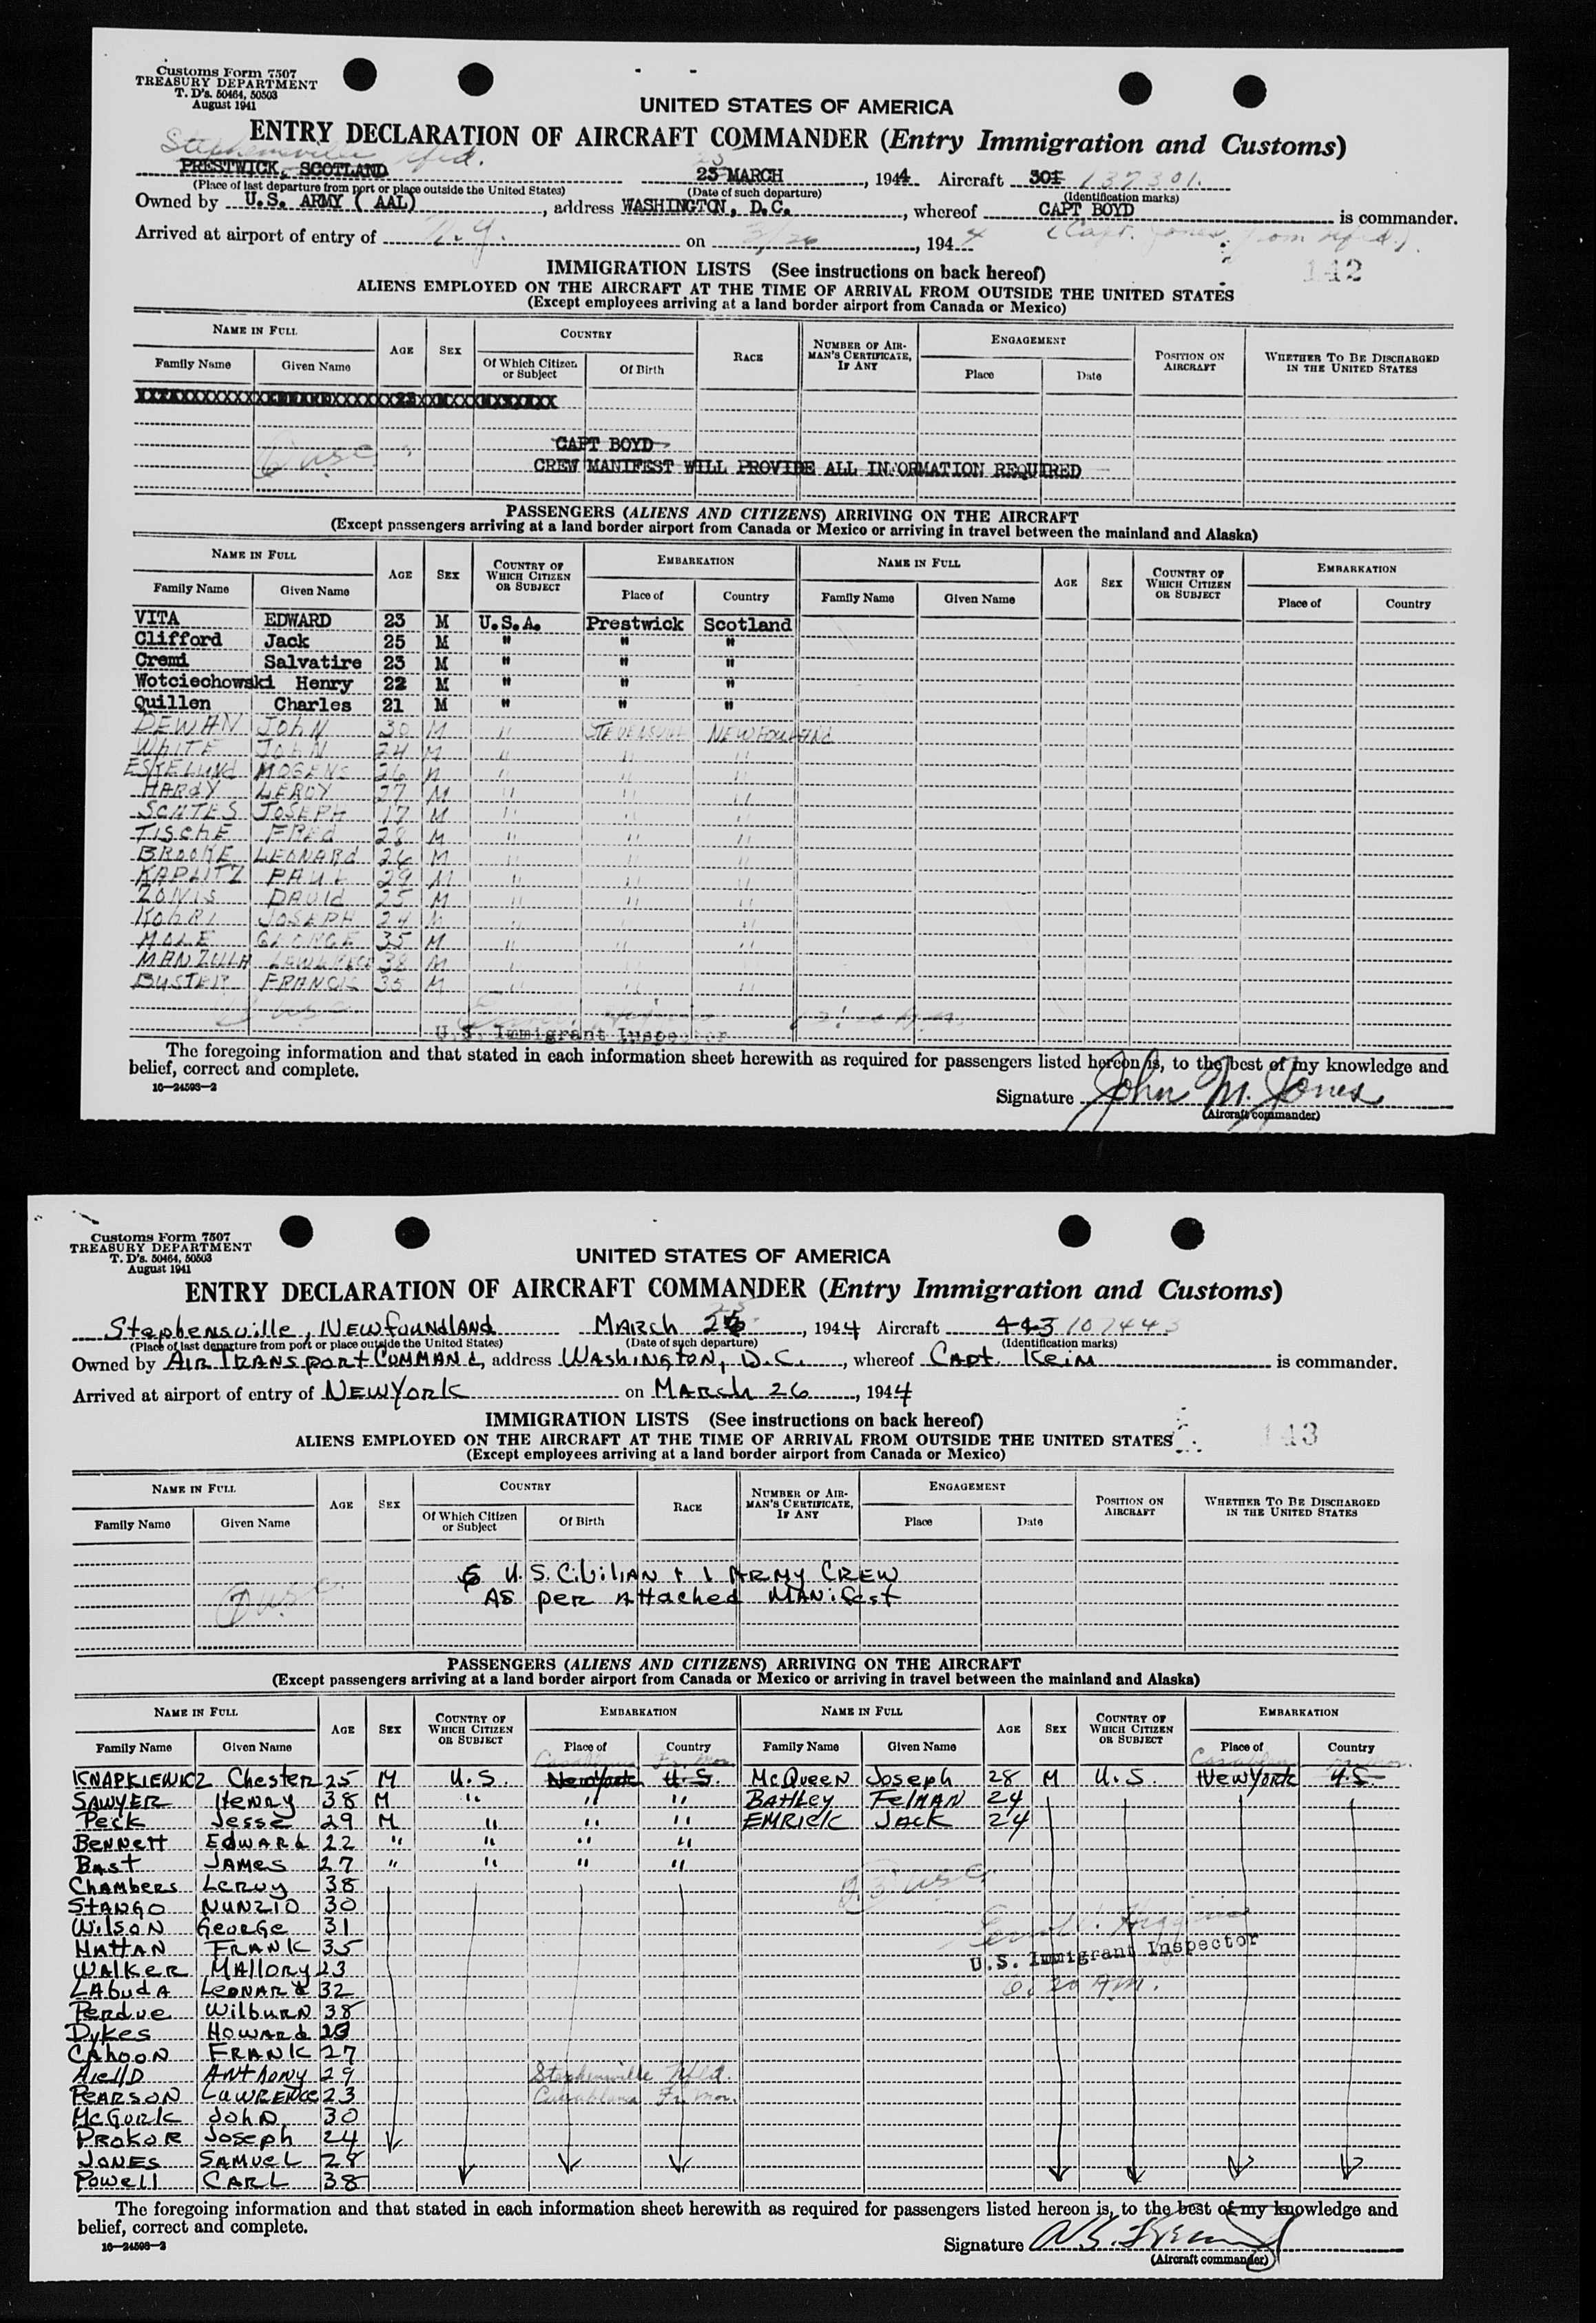 Customs Form 7507
TREASURY DEPARTMENT
T. D's. 50464, 50503
August 1941
UNITED STATES OF AMERICA
ENTRY DECLARATION OF AIRCRAFT COMMANDER (Entry Immigration and Customs)
Stephensville Nfd.
PRESTWICK, SCOTLAND 23 MARCH, 1944 Aircraft 301 137301.
(Place of last departure from port or place outside the United States) (Date of such departure) (Identification marks)
Owned by U.S. ARMY ( AAL), address WASHINGTON, D.C., whereof CAPT BOYD is commander.
Arrived at airport of entry of N.Y. on 3/26, 1944 (Capt. Jones from Nfd.).
IMMIGRATION LISTS (See instructions on back hereof) 142
ALIENS EMPLOYED ON THE AIRCRAFT AT THE TIME OF ARRIVAL FROM OUTSIDE THE UNITED STATES
(Except employees arriving at a land border airport from Canada or Mexico)
NAME IN FULL AGE SEX COUNTRY RACE NUMBER OF AIRMAN'S CERTIFICATE, IF ANY ENGAGEMENT POSITION ON AIRCRAFT WHETHER TO BE DISCHARGED IN THE UNITED STATES
Family Name Given Name Of Which Citizen or Subject Of Birth Place Date
CAPT BOYD
usc
CREW MANIFEST WILL PROVIDE ALL INFORMATION REQUIRED
PASSENGERS (ALIENS AND CITIZENS) ARRIVING ON THE AIRCRAFT
(Except passengers arriving at a land border airport from Canada or Mexico or arriving in travel between the mainland and Alaska)
NAME IN FULL AGE SEX COUNTRY OF WHICH CITIZEN OR SUBJECT EMBARKATION NAME IN FULL AGE SEX COUNTRY OF WHICH CITIZEN OR SUBJECT EMBARKATION
Family Name Given Name Place of Country Family Name Given Name Place of Country
VITA EDWARD 23 M U.S.A. Prestwick Scotland
Clifford Jack 25 M " " "
Cremi Salvatire 23 M " " "
Wotciechowski Henry 22 M " " "
Quillen Charles 21 M " " "
DEWAN JOHN 30 M " STEVENSVILLE NEWFOUNDLAND
WHITE JOHN 24 M " " "
ESKELUND MOGENS 26 M " " "
HARDY LEROY 27 M " " "
SCATES JOSEPH 17 M " " "
TISCHE FRED 28 M " " "
BROOKE LEONARD 26 M " " "
KAPLITZ PAUL 29 M " " "
ZONIS DAVID 25 M " " "
KOHRI JOSEPH 24 M " " "
MOLE GEORGE 35 M " " "
MANZULLA LAWRENCE 38 M " " "
BUSTER FRANCIS 35 M " " "
usc
U.S. Immigrant Inspector
The foregoing information and that stated in each information sheet herewith as required for passengers listed hereon is, to the best of my knowledge and
belief, correct and complete.
16—24593-2
Signature John M. Jones
(Aircraft commander)
Customs Form 7507
TREASURY DEPARTMENT
T. D's. 50464, 50503
August 1941
UNITED STATES OF AMERICA
ENTRY DECLARATION OF AIRCRAFT COMMANDER (Entry Immigration and Customs)
Stephensville, Newfoundland March 25, 1944 Aircraft 443 107443
(Place of last departure from port or place outside the United States) (Date of such departure) (Identification marks)
Owned by Air Transport Command, address Washington, D.C., whereof Capt. Keim is commander.
Arrived at airport of entry of New York on March 26, 1944
IMMIGRATION LISTS (See instructions on back hereof) 143
ALIENS EMPLOYED ON THE AIRCRAFT AT THE TIME OF ARRIVAL FROM OUTSIDE THE UNITED STATES
(Except employees arriving at a land border airport from Canada or Mexico)
NAME IN FULL AGE SEX COUNTRY RACE NUMBER OF AIRMAN'S CERTIFICATE, IF ANY ENGAGEMENT POSITION ON AIRCRAFT WHETHER TO BE DISCHARGED IN THE UNITED STATES
Family Name Given Name Of Which Citizen or Subject Of Birth Place Date
6 U.S. Civilian + 1 Army Crew
7 usc.
As per Attached Manifest
PASSENGERS (ALIENS AND CITIZENS) ARRIVING ON THE AIRCRAFT
(Except passengers arriving at a land border airport from Canada or Mexico or arriving in travel between the mainland and Alaska)
NAME IN FULL AGE SEX COUNTRY OF WHICH CITIZEN OR SUBJECT EMBARKATION NAME IN FULL AGE SEX COUNTRY OF WHICH CITIZEN OR SUBJECT EMBARKATION
Family Name Given Name Place of Country Family Name Given Name Place of Country
Casablanca Fr. Mor. Casablanca Fr. Mor.
KNAPKIEWICZ Chester 25 M U.S. New York U.S. McQueen Joseph 28 M U.S. New York U.S.
SAWYER Henry 38 M " " " BAtHLey FelMAN 24
Peck Jesse 29 M " " " EMRICK JACK 24
Bennett Edward 22 " " " "
Bast James 27 " " " "
Chambers Leroy 38
Stango Nunzio 30
Wilson George 31
Hattan Frank 35
Walker Mallory 23
Labuda Leonard 32
Perdue Wilburn 38
Dykes Howard 23
Cahoon Frank 27
Aiello Anthony 29 Stephenville Nfld.
Pearson Lawrence 23 Casablanca Fr. Mor.
McGurk John 30
Prokor Joseph 24
Jones Samuel 28
Powell Carl 38
23 usc
U.S. Immigrant Inspector
The foregoing information and that stated in each information sheet herewith as required for passengers listed hereon is, to the best of my knowledge and
belief, correct and complete.
16—24593-2
Signature
(Aircraft commander)